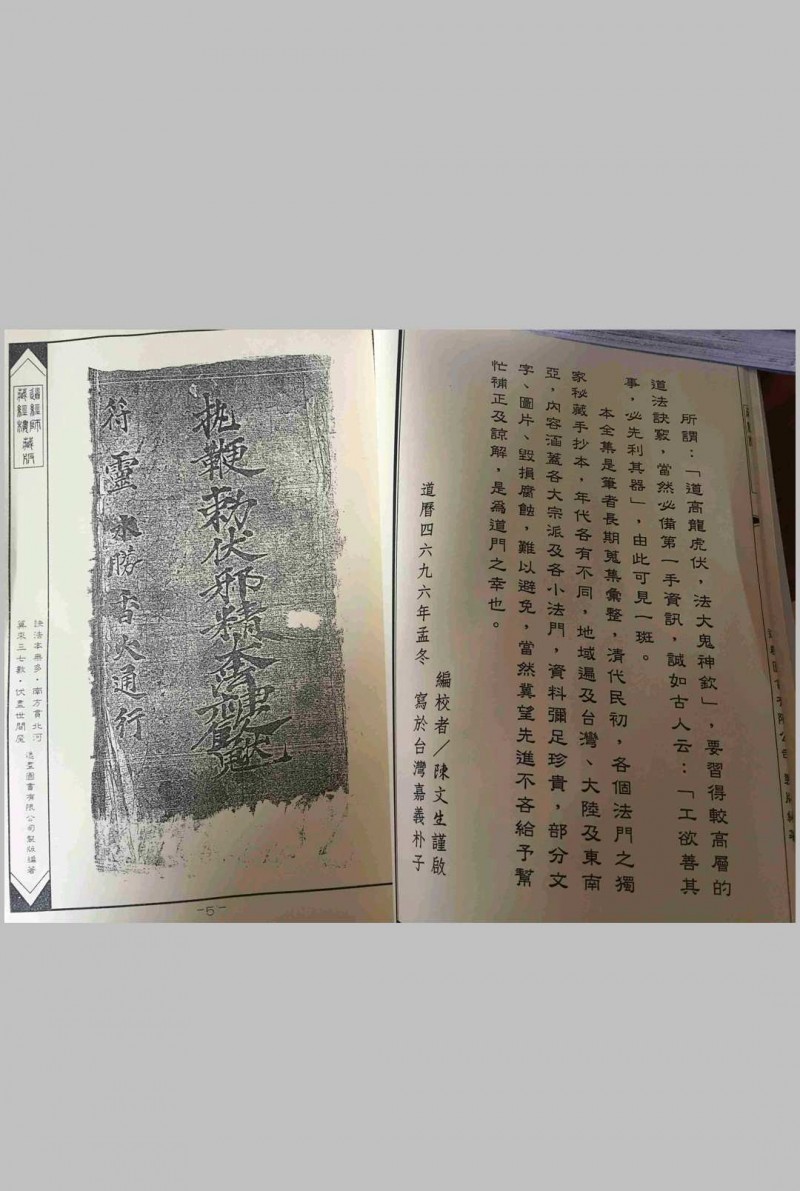 所謂：「道高龍虎伏，法大鬼神欽」，要習得較高層的
道法訣竅，當然必備第一手資訊，誠如古人云：「工欲善其
事，必先利其器」，由此可見一班。
本全集是筆者長期蒐集彙整，清代民初，各個法門之獨
家秘藏手抄本，年代各有不同，地域遍及台灣、大陸及東南
亞，內容涵蓋各大宗派及各小法門，資料彌足珍貴，部分文
字、圖片、毀損腐蝕，難以避免，當然冀望先進不吝給予幫
忙補正及諒解，是爲道門之幸也。
編校者／陳文生謹啟
道曆四六九六年孟冬 寫於台灣嘉義朴子
执鞭勅伏邪精
符靈水勝香火通行
訣法本無多，南方貫北河
算來三七數，伏盡世間魔
逸羣圖書有限公司製版編著
-5-